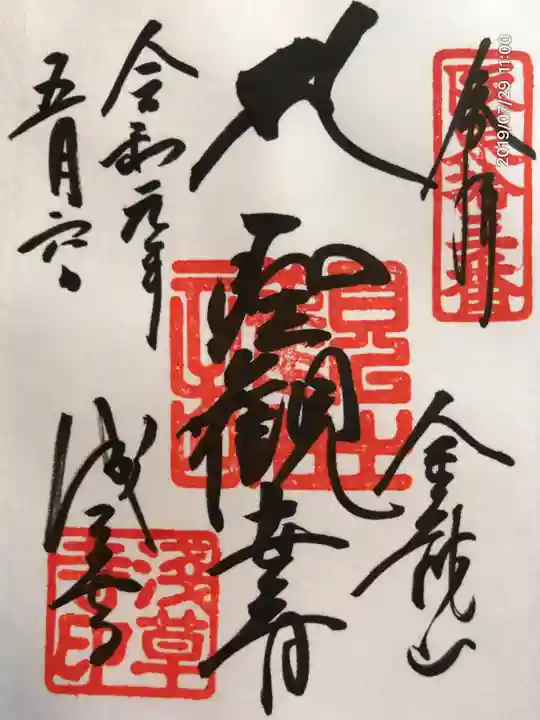 奉拝
金龍山
聖観世音
令和元年
五月六日
浅草寺
淺草寺印
2019/07/29 11:00